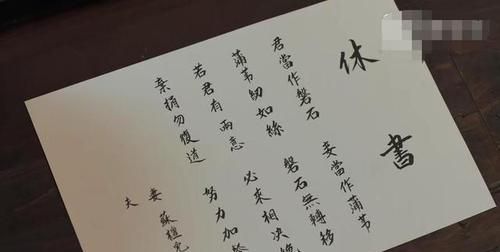 休書
君當作磐石 妾當作蒲葦
蒲葦紉如絲 磐石無轉移
若君有兩意 必來相決絕
棄捐勿復道 努力加餐
妻 蘇檀兒
夫